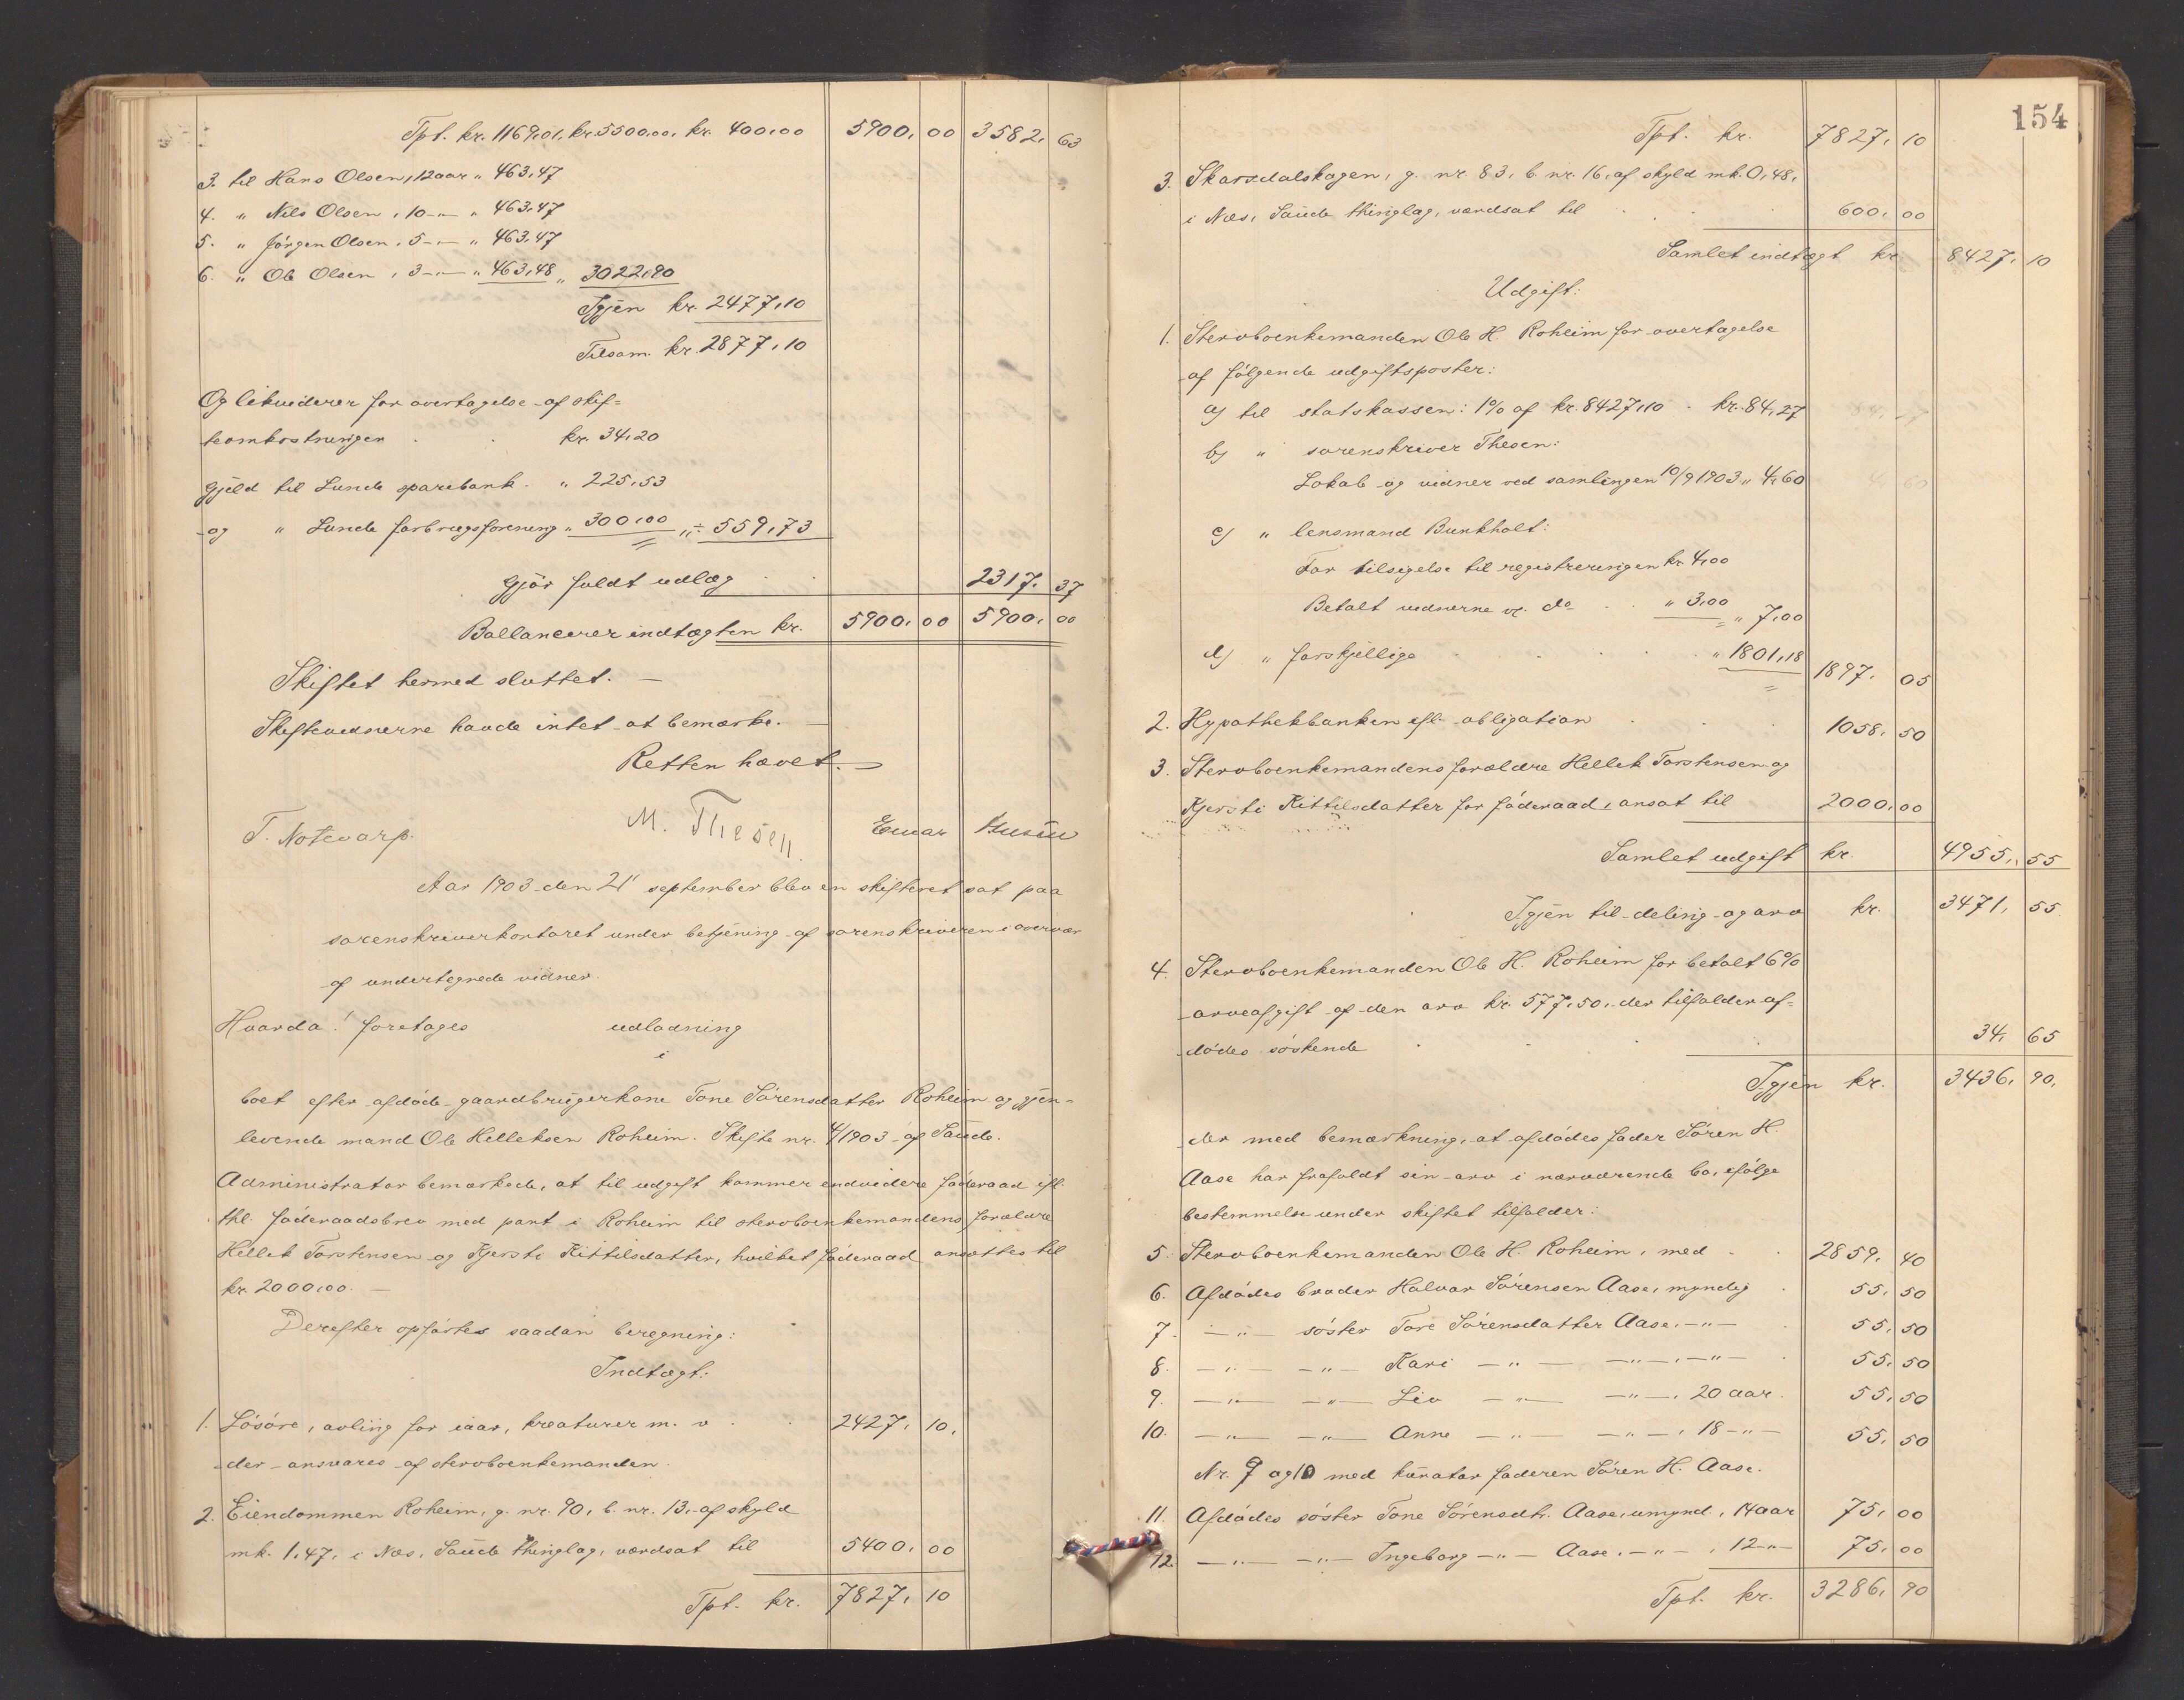 Tpt. kr. 1169,01, kr. 5500,00, kr. 400,00 5900, 00 3582, 63
3. til Hans Olsen, 12 aar „ 463,47
4. „ Nils Olsen, 10 -„- „ 463,47
5. „ Jörgen Olsen, 5 -„- „ 463,47
6. „ Ole Olsen, 3 -„- „ 463,48 „ 3022,90
Igjen kr. 2477,10
Tilsam. kr. 2877,10
Og likviderer for overtagelse af skif=
teomkostninger . . kr. 34,20
gjeld til Lunde sparebank. „ 225,53
og „ Lunde forbrugsforening „ 300,00 „ ÷ 559,73
gjör fuldt udlæg . . 2317, 37
Ballancerer indtægten kr. 5900, 00 5900, 00
Skiftet hermed sluttet. —
Skiftevidnerne havde intet at bemærke. —
Retten hævet. —
T. Notevarp. M. Thesen. Einar
Aar 1903 den 21 september blev en skifteret sat paa
sorenskriverkontoret under betjening af sorenskriveren i overvær
af undertegnede vidner.
Hvorda! foretages udlodning
i
boet efter afdöde gaardbrugerkone Tone Sörensdatter Roheim og gjen-
levende mand Ole Helleksen Roheim. Skifte nr. 4/1903 af Saude.
Administrator bemærkede, at til udgift kommer endvidere föderaad ifl.
thl. föderaadsbrev med pant i Roheim til stervboenkemandens forældre
Hellek Torstensen og Kjersti Kittilsdatter, hvilket föderaad ansattes til
kr. 2000,00. —
Derefter opförtes saadan beregning:
Indtægt:
1. Lösöre, avling for iaar, kreaturer m. v . . 2427, 10,
der ansvares af stervboenkemanden.
2. Eiendommen Roheim, g. nr. 90, b. nr. 13, af skyld
mk. 1,47, i Næs, Saude thinglag, værdsat til 5400, 00
Tpt. kr. 7827, 10
154
Tpt. kr. 7827, 10
3. Skarsdalskogen, g. nr. 83, b. nr. 16, af skyld mk. 0,48,
i Næs, Saude thinglag, værdsat til . . . 600, 00
Samlet indtægt kr. 8427, 10
Udgift:
1. Stervboenkemanden Ole H. Roheim for overtagelse
af fölgende udgiftsposter:
a) til statskassen: 1% af kr. 8427,10 . kr. 84,27
b) „ sorenskriver Thesen:
Lokale og vidner ved samlingen 10/9 1903 „ 4,60
c) „ lensmand Bunkholt:
For tilsigelse til registreringen kr. 4,00
Betalt vidnerne v. do . . „ 3,00 „ 7,00
d) „ forskjellige . . . . „ 1801,18 1897, 05
2. Hypothekbanken ifl. obligation . . . 1058, 50
3. Stervboenkemandens forældre Hellek Torstensen og
Kjersti Kittilsdatter for föderaad, ansat til 2000, 00
Samlet udgift kr. 4955, 55
Igjen til deling og arv kr. 3471, 55
4. Stervboenkemanden Ole H. Roheim for betalt 6%
arveafgift af den arv kr. 577,50, der tilfalder af=
dödes söskende . . . . 34, 65
Igjen kr. 3436, 90,
der med bemærkning, at afdödes fader Sören H.
Aase har frafaldt sin arv i nærværende bo, ifölge
bestemmelse under skiftet tilfalder:
5. Stervboenkemanden Ole H. Roheim, med . . 2859, 40
6. Afdödes broder Halvor Sörensen Aase, myndig . 55, 50
7. -„- söster Tore Sörensdatter Aase, -„- . 55, 50
8. -„- -„- Kari -„- -„-, -„- . 55, 50
9. -„- -„- Liv -„- -„-, 20 aar. 55, 50
10. -„- -„- Anne -„- -„-, 18 -„- 55, 50
Nr. 9 og 10 med kurator faderen Sören H. Aase.
11. Afdödes söster Tone Sörensdtr. Aase, umynd., 14 aar 75, 00
12. -„- -„- Ingeborg -„- Aase, -„-, 12 -„- 75, 00
Tpt. kr. 3286, 90